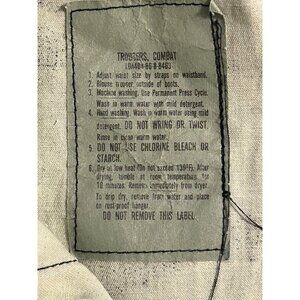 TROUSERS, COMBAT
1. Adjust waist size by straps on waistband.
2. Blouse trouser outside of boots.
3. Machine washing. Use Permanent Press Cycle.
Wash in warm water with mild detergent.
4. Hand washing. Wash in warm water using mild
detergent. DO NOT WRING OR TWIST.
Rinse in clean warm water.
5. DO NOT USE CHLORINE BLEACH OR
STARCH.
6. Dry at low heat (Do not exceed 130°F). After
drying, tumble at room temperature for
10 minutes. Remove immediately from dryer.
To drip dry, remove from water and place
on rust-proof hanger.
DO NOT REMOVE THIS LABEL